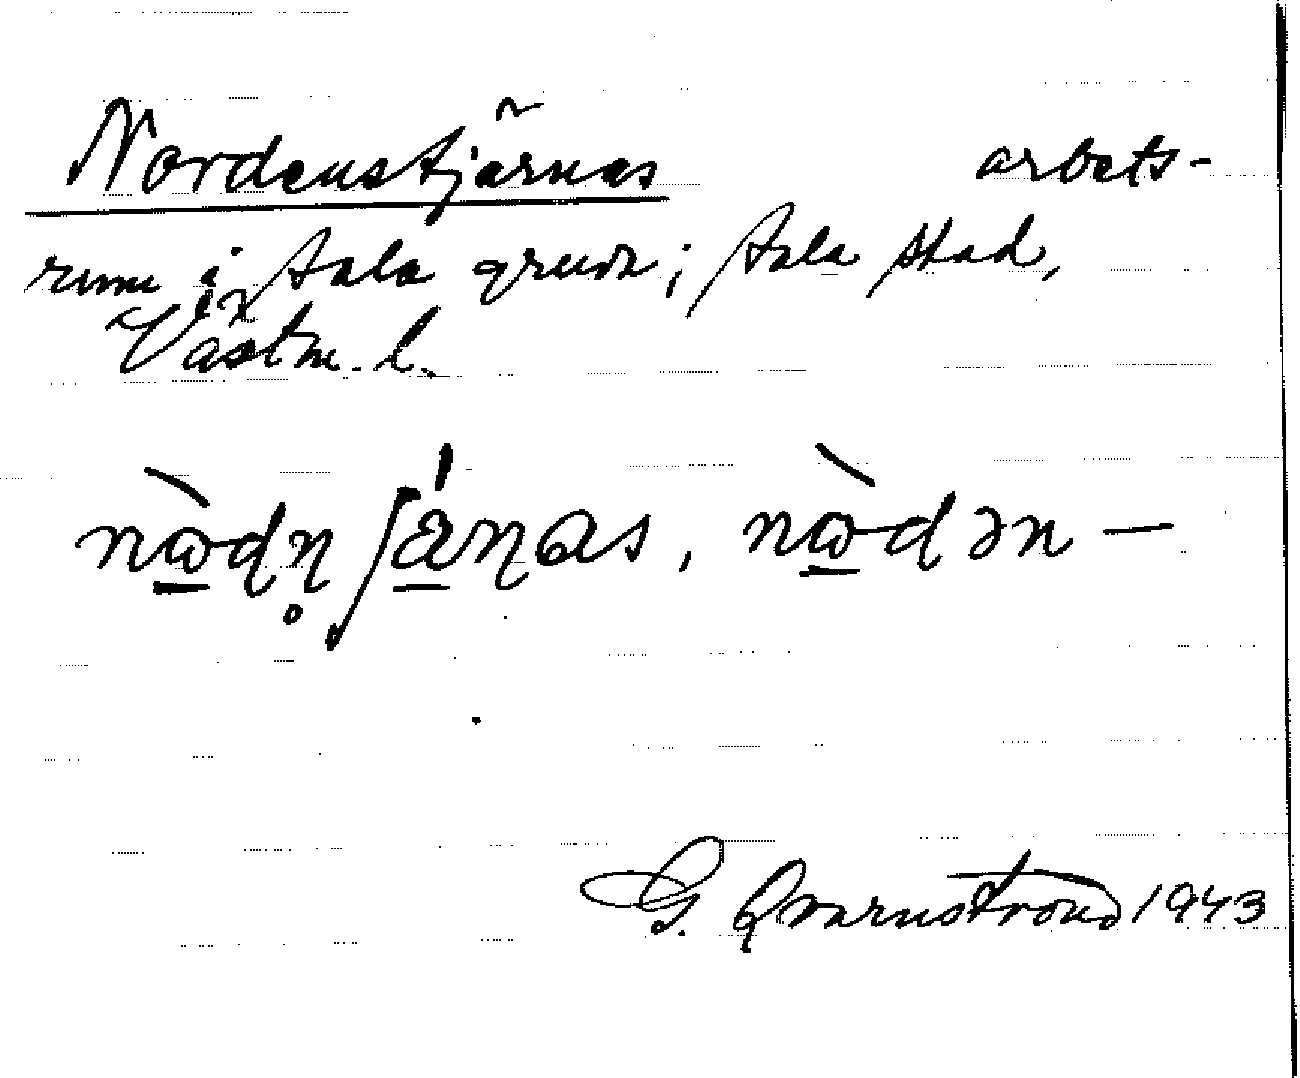 Nordenstjärnas arbets-
rum i Sala gruva; Sala stad,
Västm. l.
nὼdn̥ʃä́ηas, nὼdən —
G. Qvarnström 1943